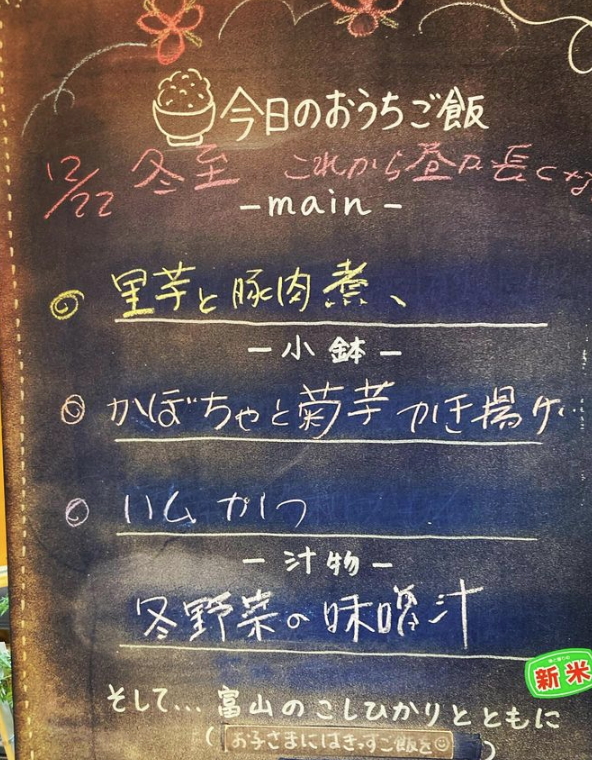 今日のおうちご飯
12/22 冬至 これから昼が長くな
-main-
里芋と豚肉煮、
-小鉢-
かぼちゃと菊芋かき揚げ
ハムかつ
-汁物-
冬野菜の味噌汁
新米
そして...富山のこしひかりとともに
(お子さまにはきっずご飯を☺)